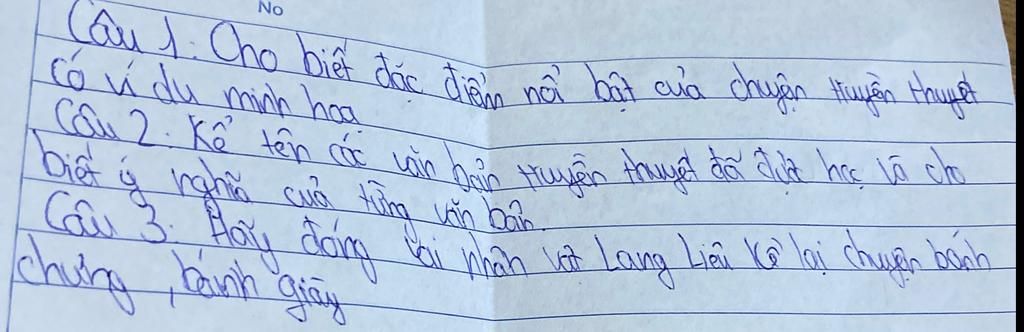 No
Câu 1: Cho biết đặc điểm nổi bật của chuyện truyền thuyết
có ví dụ minh hoạ
Câu 2: Kể tên các văn bản truyền thuyết đã được học và cho
biết ý nghĩa của từng văn bản.
Câu 3: Hãy đóng vai nhân vật Lang Liêu kể lại chuyện bánh
chưng, bánh giầy